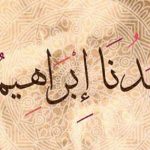 يدنَا إِبْرَاهِيمُ